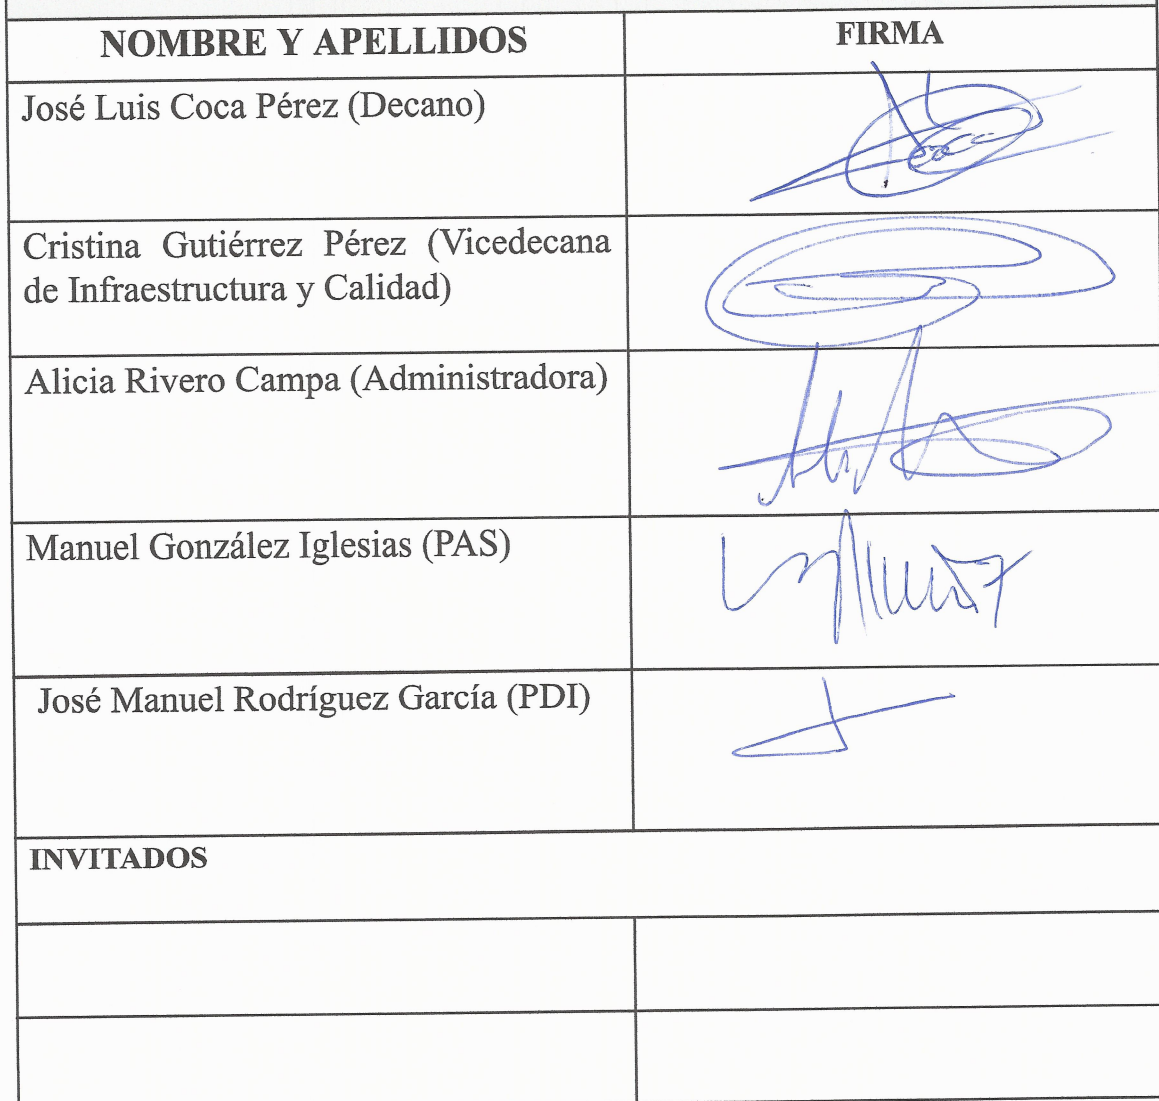 NOMBRE Y APELLIDOS
FIRMA
José Luis Coca Pérez (Decano)
Cristina Gutiérrez Pérez (Vicedecana
de Infraestructura y Calidad)
Alicia Rivero Campa (Administradora)
Manuel González Iglesias (PAS)
José Manuel Rodríguez García (PDI)
INVITADOS